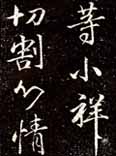 等小祥
切割心情